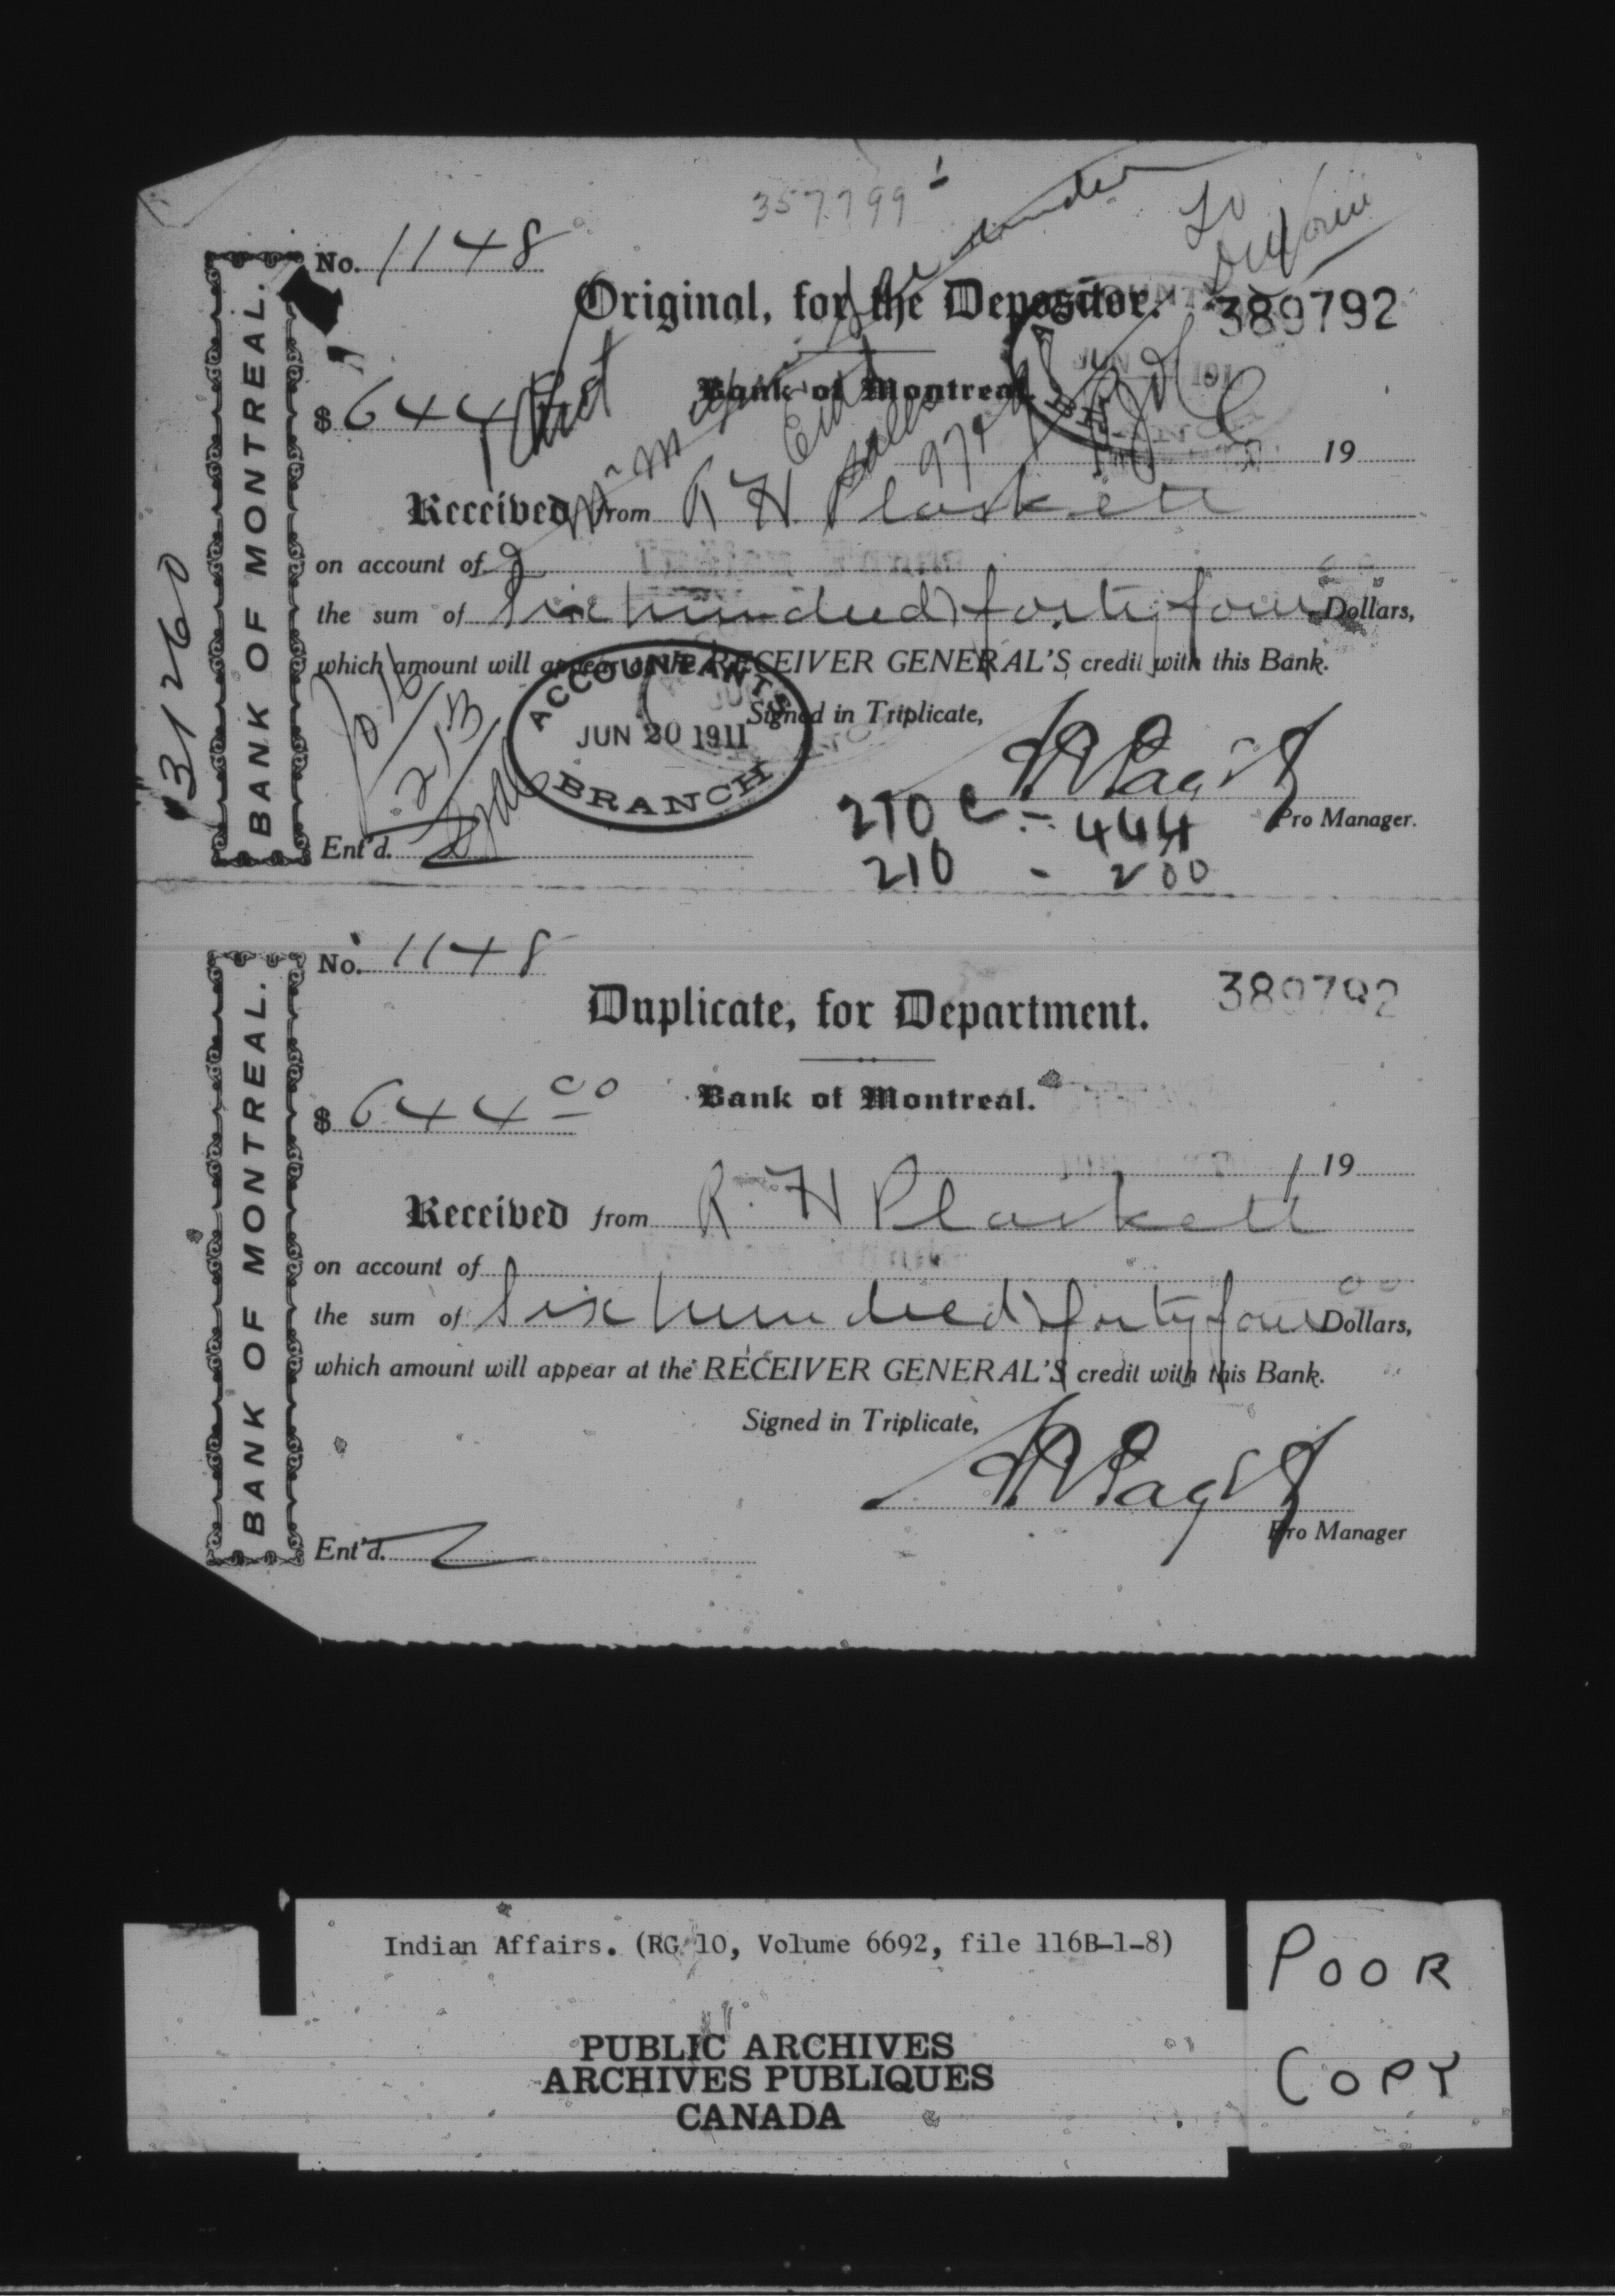 357799
To
No. 1148
Original, for the Depositor.
389792
$ 644
Bank of Montreal.
19
Received from R H Plaskett
on account of
the sum of Six hundred forty four Dollars,
which amount will appear at the RECEIVER GENERAL'S credit with this Bank.
ACCOUNTANT'S
JUN 20 1911
BRANCH
Signed in Triplicate,
Pro Manager.
210 C - 444
210 - 200
Ent'd.
BANK OF MONTREAL.
31260
No. 1148
389792
Duplicate, for Department.
Bank of Montreal.
$ 644 00
19
Received from R. H Plaskett
on account of
the sum of Six hundred forty four 00 Dollars,
which amount will appear at the RECEIVER GENERAL'S credit with this Bank.
Signed in Triplicate,
Pro Manager
Ent'd.
BANK OF MONTREAL.
Indian Affairs. (RG 10, Volume 6692, file 116B-1-8)
PUBLIC ARCHIVES
ARCHIVES PUBLIQUES
CANADA
POOR
COPY